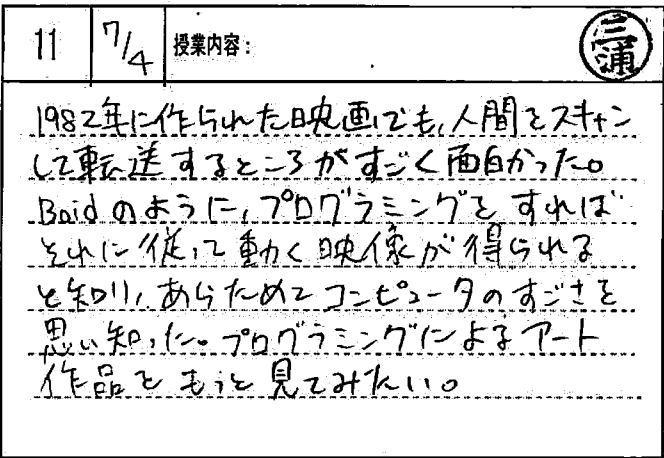 11 7/4 授業内容: 三浦
1982年に作られた映画でも、人間をスキャン
して転送するところがすごく面白かった。
Boidのように、プログラミングをすれば
それに従って動く映像が得られる
と知り、あらためてコンピュータのすごさを
思い知った。プログラミングによるアート
作品をもっと見てみたい。